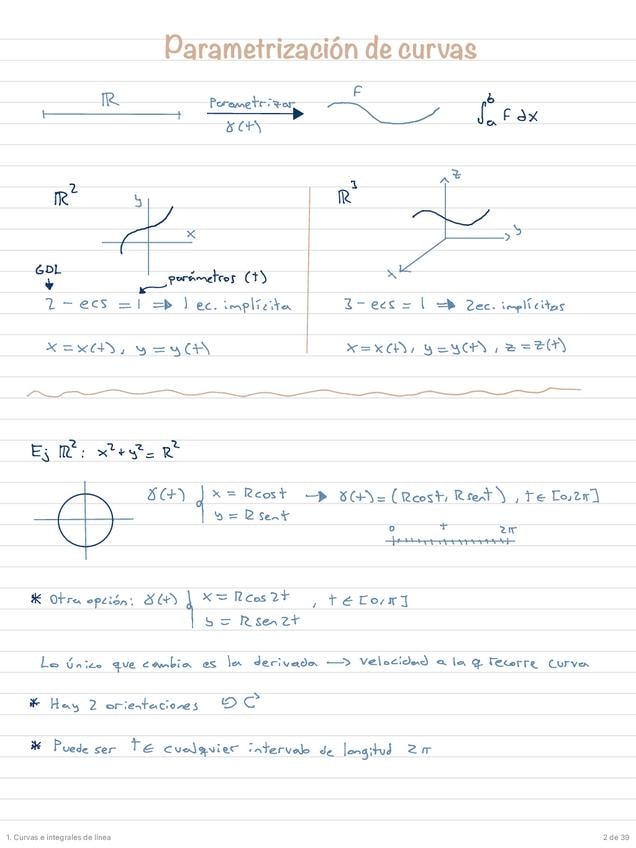 Parametrización de curvas
ℝ Parametrizar γ(t) F ∫ₐᵇ F dx
ℝ² y x
ℝ³ z y x
GDL parámetros (t)
2 - ecs = 1 ⇒ 1 ec. implícita
x = x(t), y = y(t)
3 - ecs = 1 ⇒ 2 ec. implícitas
x = x(t), y = y(t), z = z(t)
Ej ℝ²: x² + y² = R²
γ(t) { x = R cos t → γ(t) = (R cos t, R sen t), t ∈ [0, 2π]
y = R sen t
0 t 2π
* Otra opción: γ(t) { x = R cos 2t , t ∈ [0, π]
y = R sen 2t
Lo único que cambia es la derivada → velocidad a la q recorre curva
* Hay 2 orientaciones ↺ ↻
* Puede ser t ∈ cualquier intervalo de longitud 2π
1. Curvas e integrales de línea
2 de 39